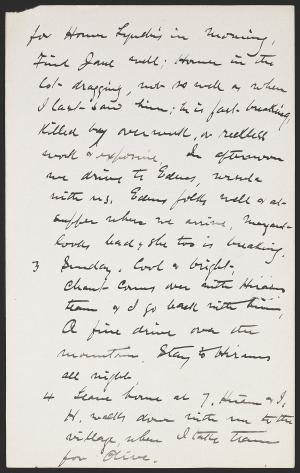 for Homer Lynch's in morning,
Find Jane well; Homer in the
lot dragging, not so well as when
I last saw him; he is fast breaking,
killed by overwork, or reckless
work & exposure. In afternoon
we drive to Edens, Ursula
with us. Edens folks well & at
supper when we arrive, Margaret
looks bad, she too is breaking.
3 Sunday. Cool & bright.
Chant comes over with Hiram's
team & I go back with him,
A fine drive over the
mountain. Stay to Hirams
all night.
4 Leave home at 7. Hiram & I.
H. walks down with me to the
village, when I take team
for Olive.